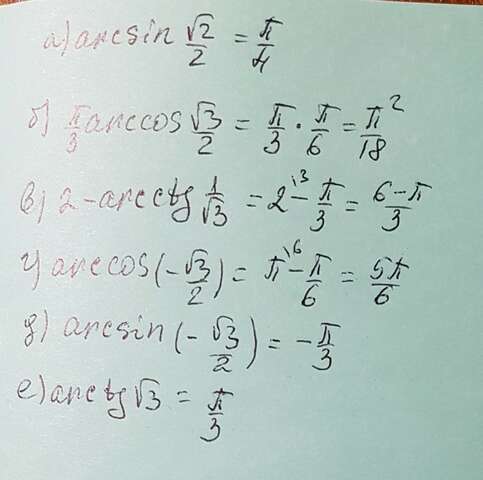 а) arcsin √2/2 = π/4
б) π/3 arccos √3/2 = π/3 · π/6 = π²/18
в) 2 - arcctg 1/√3 = 2\3 - π/3 = (6-π)/3
г) arccos(-√3/2) = π\6 - π/6 = 5π/6
д) arcsin(-√3/2) = -π/3
е) arctg √3 = π/3